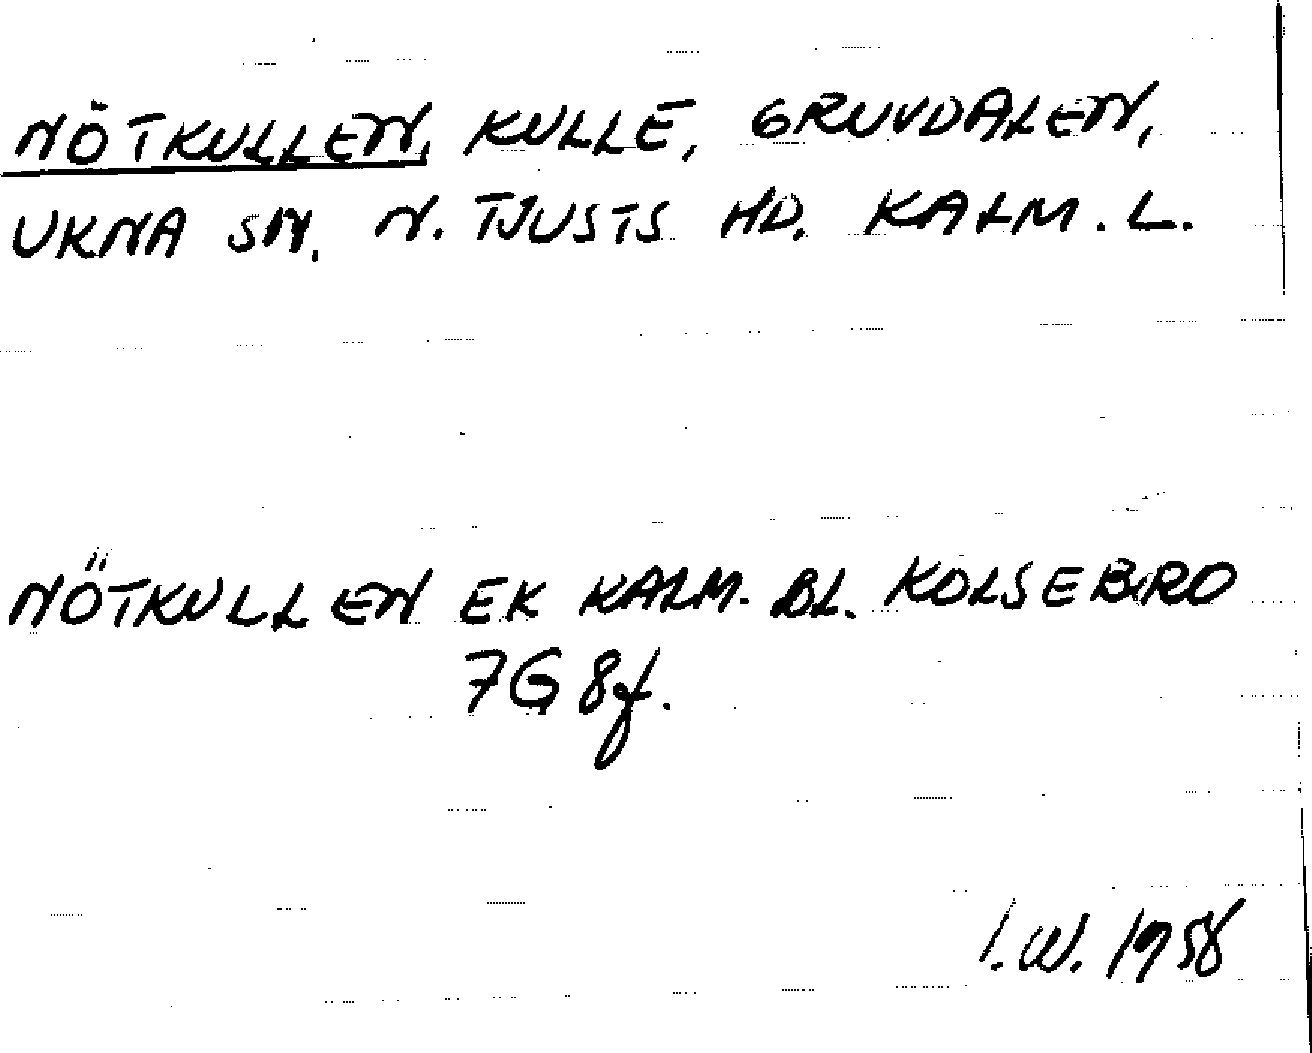 NÖTKULLEN, KULLE, GRUVDALEN,
UKNA SN. N. TJUSTS HD. KALM. L.
NÖTKULLEN EK KALM. BL. KOLSEBRO
7G 8f.
I.W. 1958